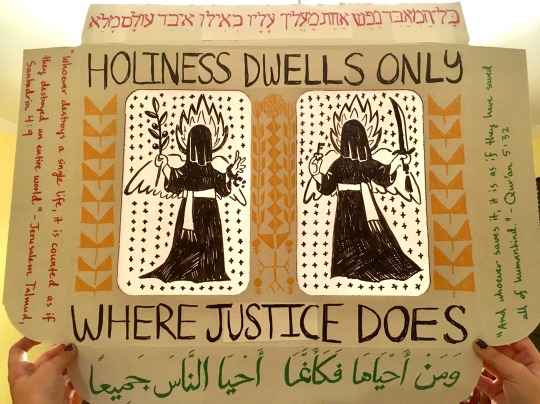 כָּל הַמְאַבֵּד נֶפֶשׁ אַחַת מַעֲלִין עָלָיו כְּאִילּוּ אִיבֵּד עוֹלָם מָלֵא
HOLINESS DWELLS ONLY
"Whoever destroys a single life, it is counted as if
they destroyed an entire world." - Jerusalem Talmud,
Sanhedrin 4:9
"And whoever saves it, it is as if they have saved
all of humankind." - Qur'an 5:32
WHERE JUSTICE DOES
وَمَنْ أَحْيَاهَا فَكَأَنَّمَا أَحْيَا النَّاسَ جَمِيعًا